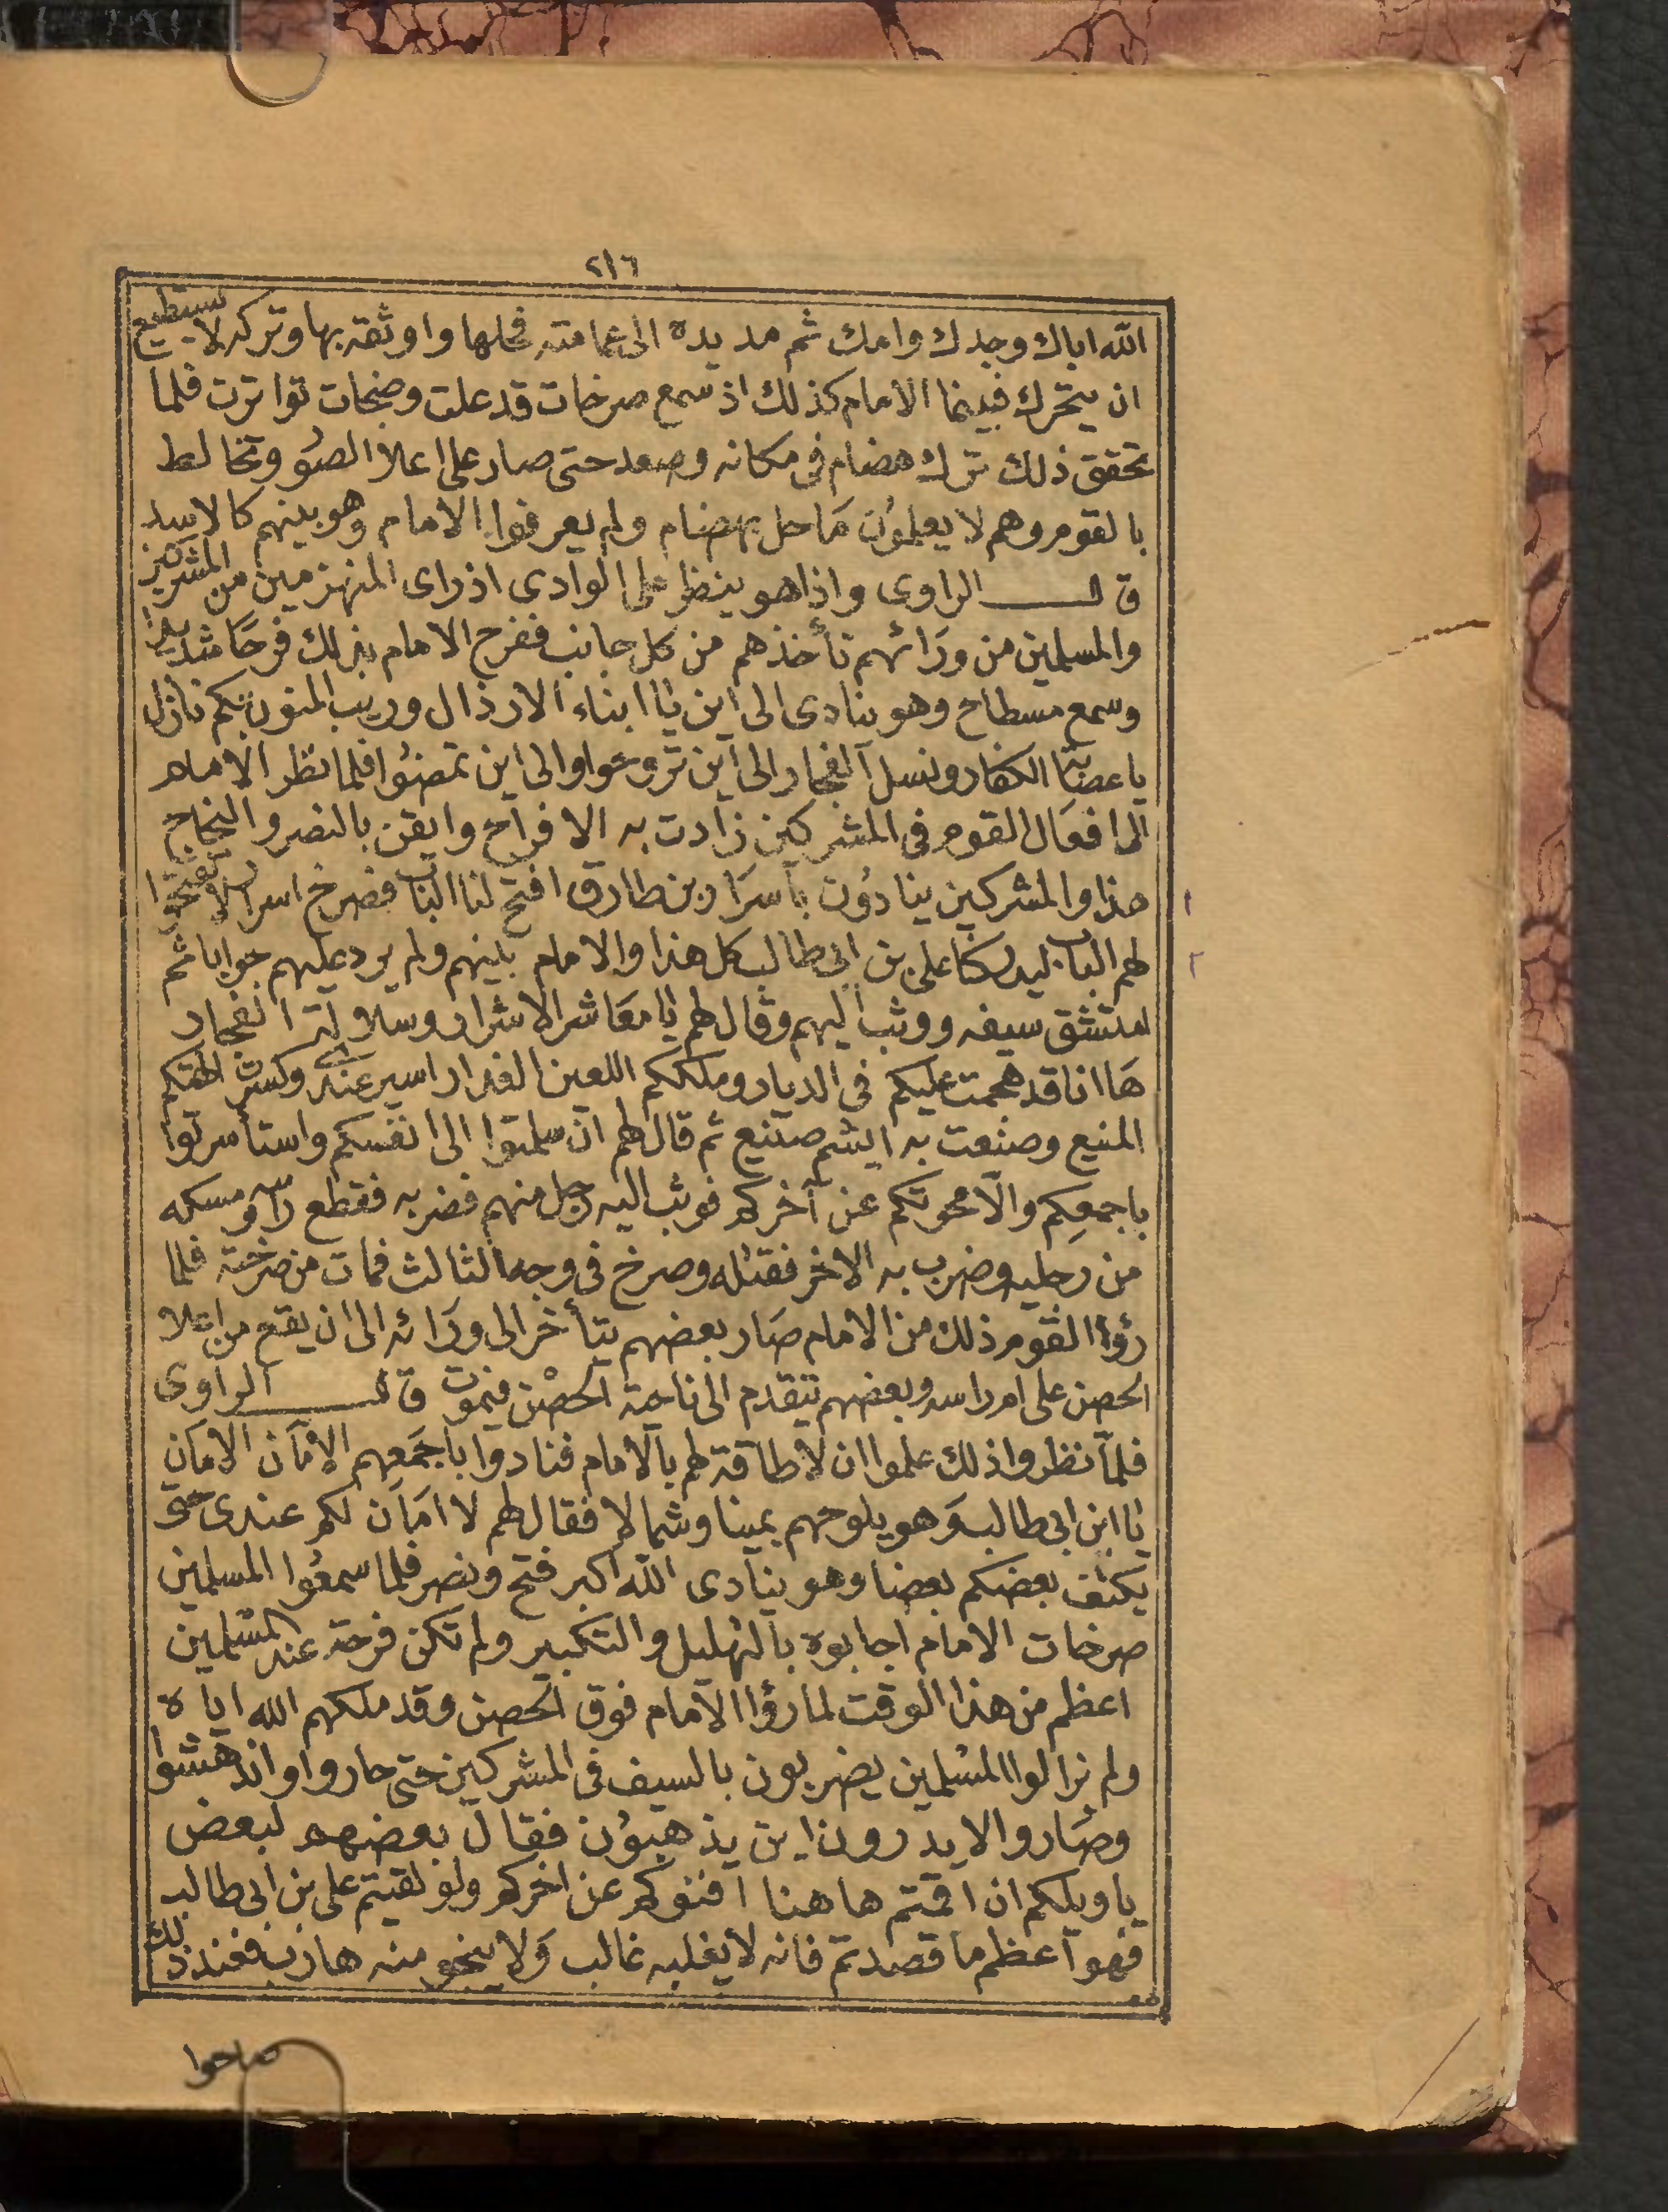 ٢١٦
الله اباك وجدك وامك ثم مد يده الى عمامته فحلها واوثقه بها وتركه لا يستطيع
ان يتحرك فبينما الامام كذلك اذ سمع صرخات قد علت وضجات تواترت فلما
تحقق ذلك ترك هضام فى مكانه وصعد حتى صار على اعلا الصور وتخالط
بالقوم وهم لا يعلمون ما حل بهضام ولم يعرفوا الامام وهو بينهم كالاسد
قال الراوى واذا هو ينظر على الوادى اذ راى المنهزمين من المشركين
والمسلمين من ورائهم تأخذهم من كل جانب ففرح الامام بذلك فرحا شديدا
وسمع مسطاح وهو ينادى الى اين يا ابناء الارذال وريب المنون بكم نازل
يا عصبة الكفار ونسل الفجار الى اين تروعوا والى اين تمضوا فلما نظر الامام
الى افعال القوم فى المشركين زادت به الافراح وايقن بالنصر والنجاح
هذا والمشركين ينادون يا سرار بن طارق افتح لنا الباب فصرخ اسرار لا تفتحوا
لهم الباب ليدركنا على بن ابى طالب كل هذا والامام بينهم ولم يرد عليهم جوابا ثم
امتشق سيفه ووثب اليهم وقال لهم يا معاشر الاشرار وسلالة الفجار
ها انا قد هجمت عليكم فى الديار وملككم اللعين الغدار اسير عندى وكسرت الهتكم
المنيع وصنعت به ايشم صنيع ثم قال لهم ان سلمتوا الى انفسكم واستأسرتوا
باجمعكم والا محوتكم عن آخركم فوثب اليه رجل منهم فضربه فقطع راسه ومسكه
من رجليه وضرب به الاخر فقتله وصرخ فى وجه الثالث فمات من صرخته فلما
رؤا القوم ذلك من الامام صار بعضهم يتأخر الى ورائه الى ان يقع من اعلا
الحصن على ام راسه وبعضهم يتقدم الى ناحية الحصن فيموت قال الراوى
فلما نظروا ذلك علموا ان لا طاقة لهم بالامام فنادوا باجمعهم الامان الامان
يا ابن ابى طالب وهو يلوحهم يمينا وشمالا فقال لهم لا امان لكم عندى حتى
يكتف بعضكم بعضا وهو ينادى الله اكبر فتح ونصر فلما سمعوا المسلمين
صرخات الامام اجابوه بالتهليل والتكبير ولم تكن فرحة عند المسلمين
اعظم من هذا الوقت لما رؤا الامام فوق الحصن وقد ملكهم الله اياه
ولم نزالوا المسلمين يضربون بالسيف فى المشركين حتى حاروا واندهشوا
وصاروا لا يدرون اين يذهبون فقال بعضهم لبعض
يا ويلكم ان اقمتم هاهنا افنوكم عن اخركم ولو لقيتم على بن ابى طالب
فهو اعظم ما قصدتم فانه لا يغلبه غالب ولا ينجو منه هارب فعند ذلك
صاحوا
١
٢